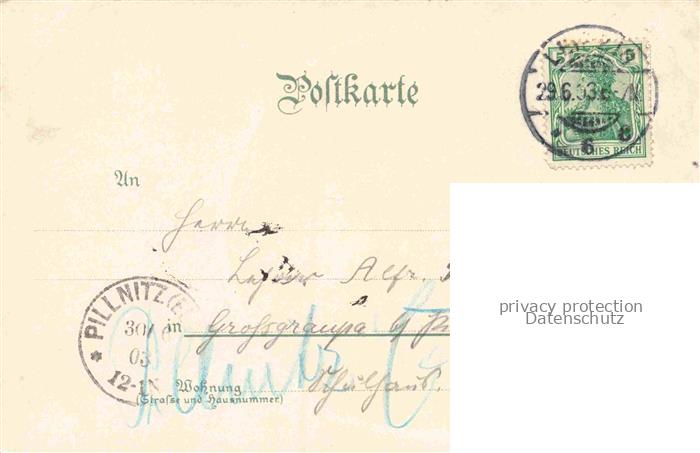 Postkarte
29.6.03.
6
DEUTSCHES REICH
An
Herrn
Lehrer Alfr.
PILLNITZ (E
30/
03
12-1N
in Grossgraupa b/ Pi
Pillnitz
Schulhaus.
Wohnung
(Strasse und Hausnummer)
privacy protection
Datenschutz